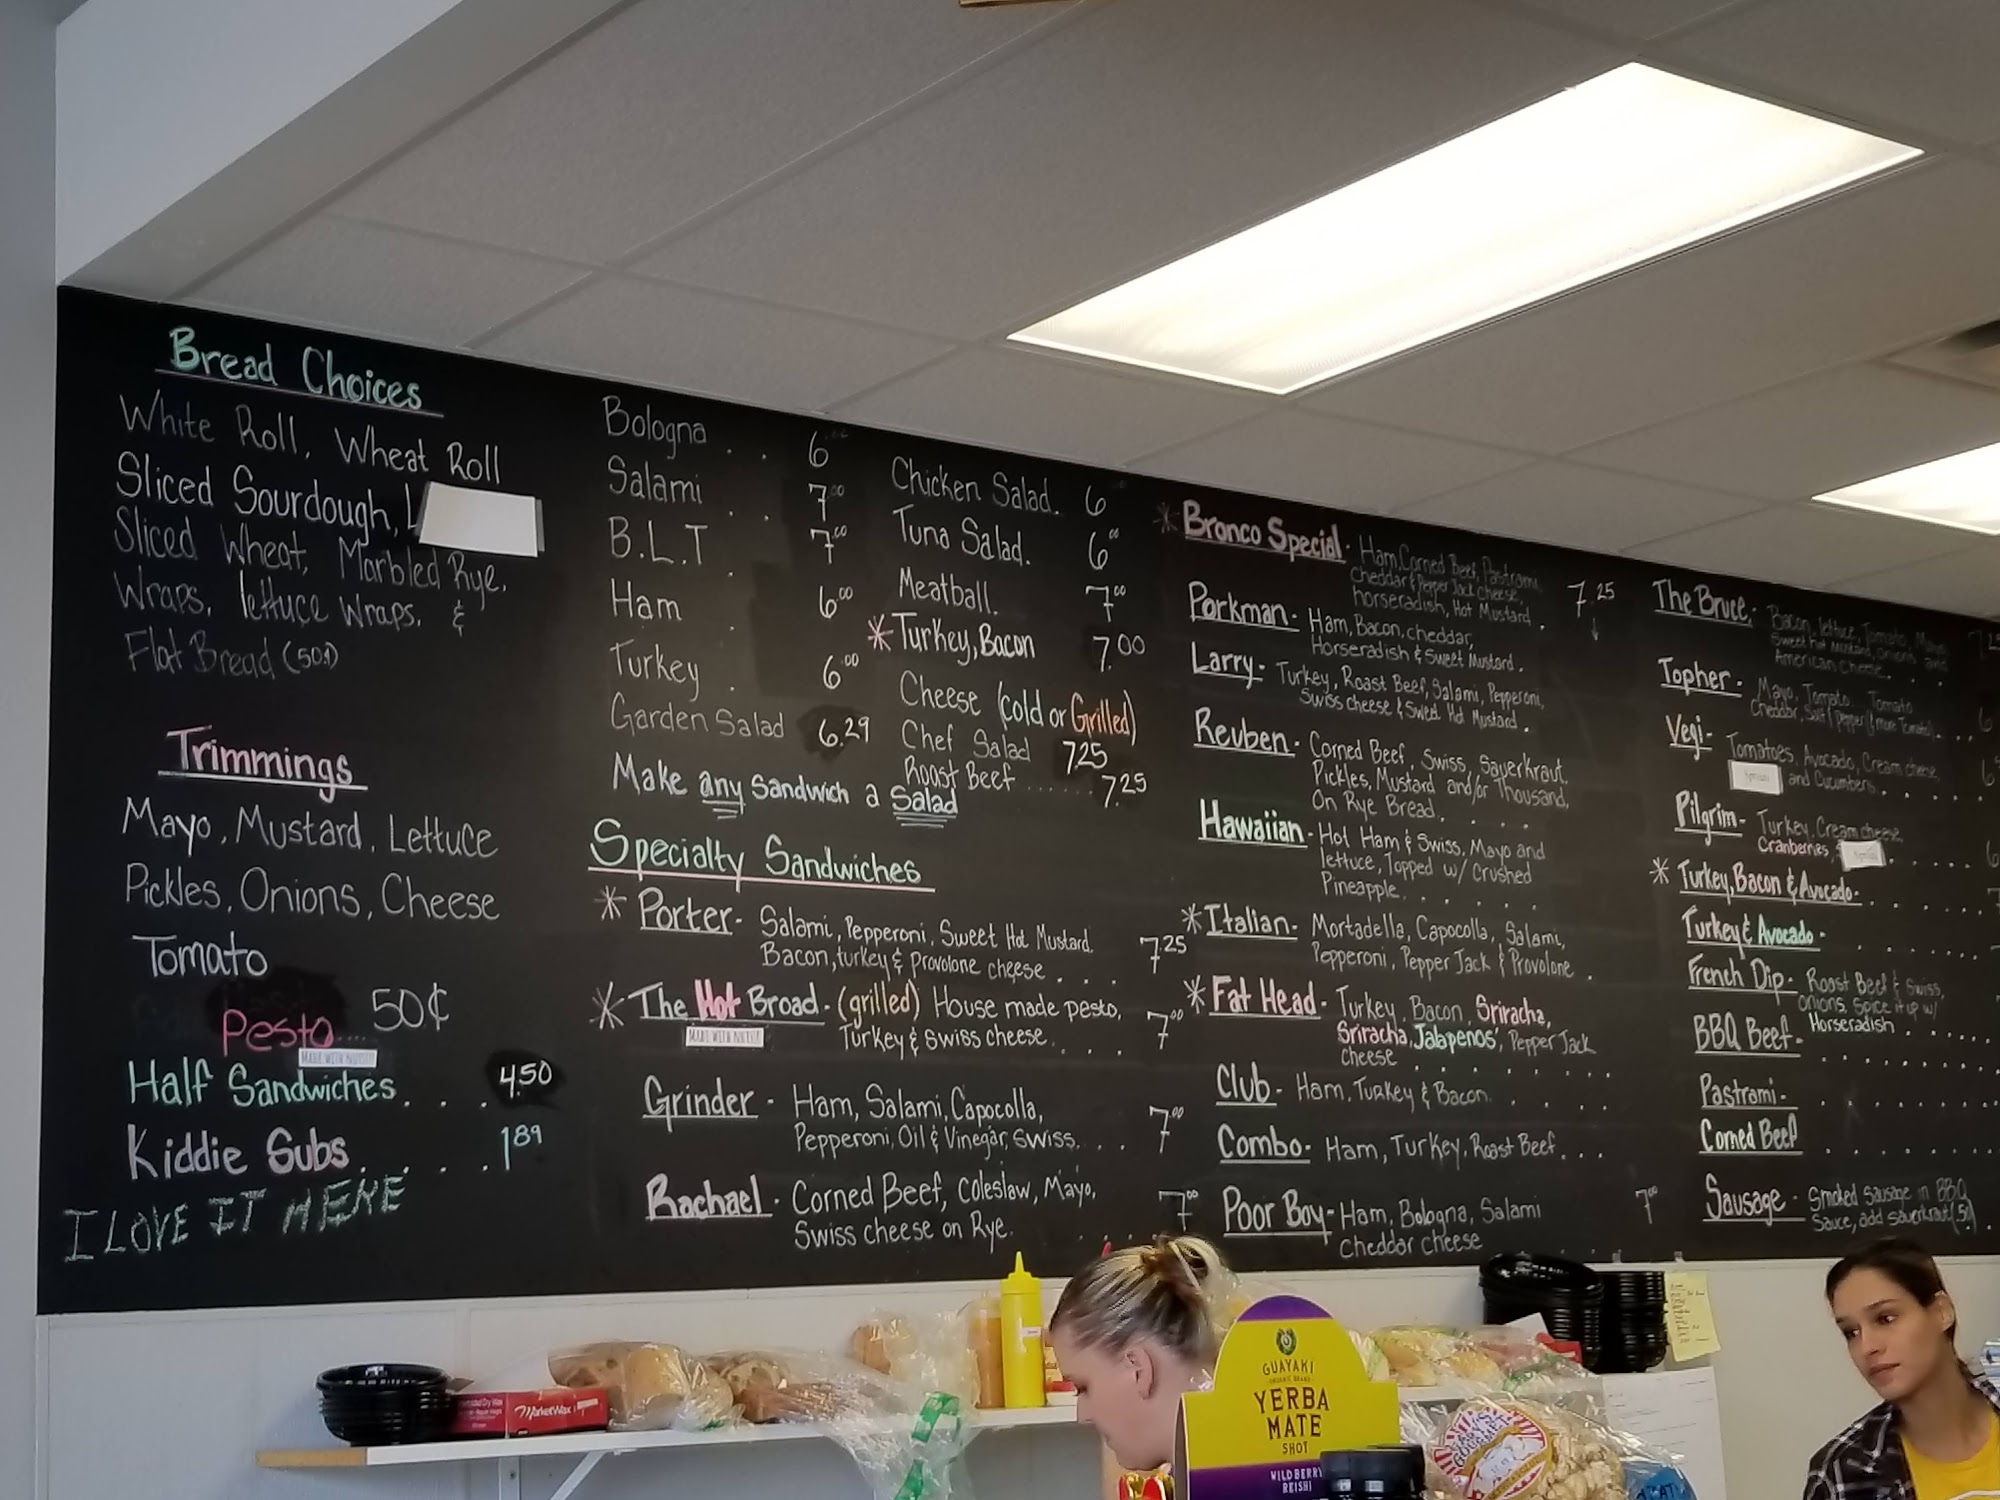 Bread Choices
White Roll, Wheat Roll
Sliced Sourdough, L
Sliced Wheat, Marbled Rye,
Wraps, lettuce Wraps, &
Flat Bread (50¢)
Trimmings
Mayo, Mustard, Lettuce
Pickles, Onions, Cheese
Tomato
Pesto.... 50¢
MADE WITH NUTS!!
Half Sandwiches. . . 4.50
Kiddie Subs. . . . . 1.89
I LOVE IT HERE
Bologna . . 6.00
Salami . . 7.00
B.L.T . 7.00
Ham . 6.00
Turkey . 6.00
Garden Salad 6.29
Make any Sandwich a Salad
Chicken Salad. 6
Tuna Salad. 6.00
Meatball. 7.00
* Turkey, Bacon 7.00
Cheese (cold or Grilled)
Chef Salad 7.25
Roast Beef ...... 7.25
Specialty Sandwiches
* Porter- Salami, Pepperoni, Sweet Hot Mustard.
Bacon, turkey & Provolone cheese . . . . 7.25
* The Hot Broad- (grilled) House made pesto,
MADE WITH NUTS!!
Turkey & Swiss cheese. . . . 7.00
Grinder - Ham, Salami, Capocolla,
Pepperoni, Oil & Vinegar, Swiss. . . . 7.00
Rachael - Corned Beef, Coleslaw, Mayo,
Swiss cheese on Rye. . . . 7.00
* Bronco Special- Ham, Corned Beef, Pastrami,
cheddar & Pepper Jack cheese,
horseradish, Hot Mustard . 7.25
Porkman- Ham, Bacon, cheddar,
Horseradish & Sweet Mustard .
Larry- Turkey, Roast Beef, Salami, Pepperoni,
Swiss cheese & Sweet Hot Mustard .
Reuben- Corned Beef, Swiss, Sauerkraut,
Pickles, Mustard and/or Thousand,
On Rye Bread. . . . .
Hawaiian- Hot Ham & Swiss, Mayo and
lettuce, Topped w/ Crushed
Pineapple. . . . . .
* Italian- Mortadella, Capocolla, Salami,
Pepperoni, Pepper Jack & Provolone .
* Fat Head- Turkey, Bacon, Sriracha,
Sriracha, Jalapenos', Pepper Jack
cheese . . . . . . . .
Club- Ham, Turkey & Bacon. . . . . .
Combo- Ham, Turkey, Roast Beef. . . .
Poor Boy- Ham, Bologna, Salami 7.00
Cheddar cheese
The Bruce: Bacon, lettuce, Tomato, Mayo,
Sweet hot Mustard, onions and
American Cheese . . . .
Topher- Mayo, Tomato, Tomato
Cheddar, Salt & pepper (& more Tomato). . .
Vegi- Tomatoes, Avocado, Cream cheese,
Sprouts and Cucumbers. . . . .
Pilgrim- Turkey, Cream cheese,
Cranberries, Sprouts . . . . .
* Turkey, Bacon & Avocado-
Turkey & Avocado-
French Dip- Roast Beef & Swiss,
onions, spice it up w/
Horseradish
BBQ Beef-
Pastrami-
Corned Beef
Sausage- Smoked sausage in BBQ
Sauce, add sauerkraut (.50)
MarketWax
GUAYAKI
ORGANIC BRAND
YERBA
MATE
SHOT
WILD BERRY
REISHI
GOURMET